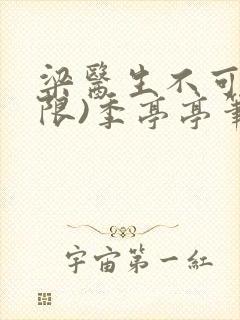 梁醫生不可
限)季亭亭筆
宇宙第一紅